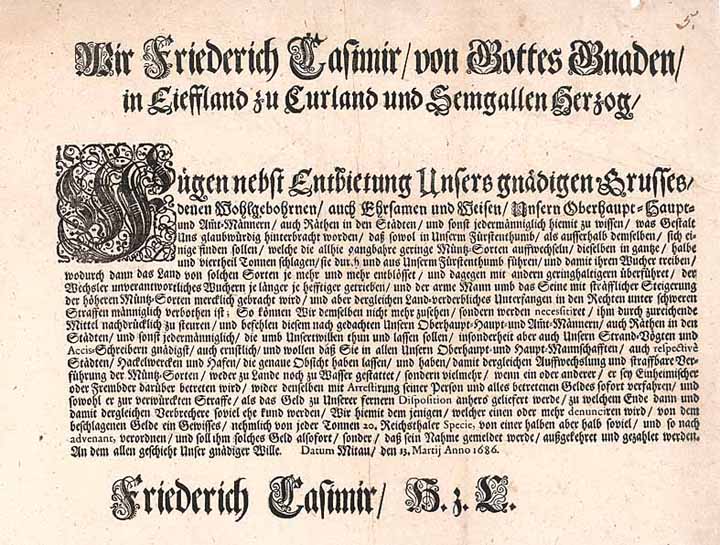 5.
Wir Friederich Casimir/ von Gottes Gnaden/
in Lieffland zu Curland und Semgallen Herzog/
Fügen nebst Entbietung Unsers gnädigen Grusses/
denen Wohlgebohrnen/ auch Ehrsamen und Weisen/ Unsern Oberhaupt-Haupt-
und Amt-Männern/ auch Räthen in den Städten/ und sonst jedermänniglich hiemit zu wissen/ was Gestalt
Uns glaubwürdig hinterbracht worden/ daß sowol in Unserm Fürstenthumb/ als ausserhalb demselben/ sich ei-
nige finden sollen/ welche die allhie gangbahre geringe Müntz-Sorten auffwechseln/ dieselben in gantze/ halbe
und viertheil Tonnen schlagen/ sie durch und aus Unserm Fürstenthumb führen/ und damit ihren Wucher treiben/
wodurch dann das Land von solchen Sorten je mehr und mehr entblösset/ und dagegen mit andern geringhaltigern überführet/ der
Wechsler unverantwortliches Wuchern je länger je hefftiger getrieben/ und der arme Mann umb das Seine mit sträfflicher Steigerung
der höheren Müntz-Sorten mercklich gebracht wird/ und aber dergleichen Land-verderbliches Unterfangen in den Rechten unter schweren
Straffen männiglich verbothen ist; So können Wir demselben nicht mehr zusehen/ sondern werden necesitiret/ ihm durch zureichende
Mittel nachdrücklich zu steuren/ und befehlen diesem nach gedachten Unsern Oberhaupt-Haupt-und Amt-Männern/ auch Räthen in den
Städten/ und sonst jedermänniglich/ die umb Unsertwillen thun und lassen sollen/ insonderheit aber auch Unsern Strand-Vögten und
Accis-Schreibern gnädigst/ auch ernstlich/ und wollen daß Sie in allen Unsern Oberhaupt-und Haupt-Mannschafften/ auch respectivè
Städten/ Hackelwercken und Hafen/ die genaue Obsicht haben lassen/ und haben/ damit dergleichen Auffwechslung und straffbare Ver-
führung der Müntz-Sorten/ weder zu Lande noch zu Wasser gestattet/ sondern vielmehr/ wenn ein oder anderer/ er sey Einheimischer
oder Frembder darüber betreten wird/ wieder denselben mit Arrestirung seiner Person und alles betretenen Geldes sofort verfahren/ und
sowohl er zur verwürckten Straffe/ als das Geld zu Unserer fernern Disposition anhero geliefert werde/ zu welchem Ende dann und
damit dergleichen Verbrechere soviel ehe kund werden/ Wir hiemit dem jenigen/ welcher einen oder mehr denunciren wird/ von dem
beschlagenen Gelde ein Gewisses/ nehmlich von jeder Tonnen 20. Reichsthaler Specie, von einer halben aber halb soviel/ und so nach
advenant, verordnen/ und soll ihm solches Geld alsofort/ sonder/ daß sein Nahme gemeldet werde/ außgekehret und gezahlet werden.
An dem allen geschieht Unser gnädiger Wille. Datum Mitau/ den 13. Martij Anno 1686.
Friederich Casimir/ H. z. C.